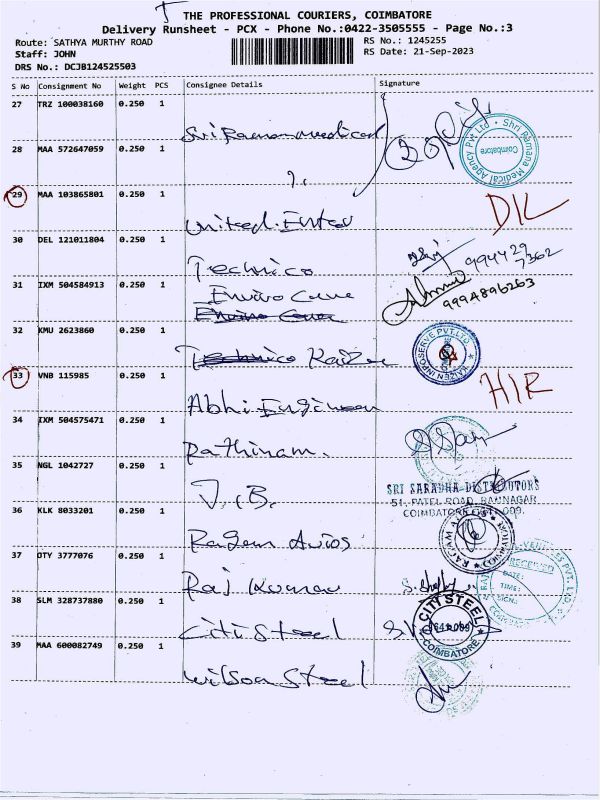 THE PROFESSIONAL COURIERS, COIMBATORE
Delivery Runsheet - PCX - Phone No.:0422-3505555 - Page No.:3
Route: SATHYA MURTHY ROAD
RS No.: 1245255
Staff: JOHN
RS Date: 21-Sep-2023
DRS No.: DCJB124525503
S No Consignment No Weight PCS Consignee Details Signature
27 TRZ 100038160 0.250 1
Sri Ramana Medical
28 MAA 572647059 0.250 1
Shri Ramana Medical Agency Pvt Ltd
Coimbatore
29 MAA 103865801 0.250 1
United Enter
DIL
30 DEL 121011804 0.250 1
Technico
994429
7362
31 IXM 504584913 0.250 1
Enviro Care
Enviro Care
9994896263
32 KMU 2623860 0.250 1
Technico Kaizen
KAIZEN INFOSERVE PVT.LTD
33 VNB 115985 0.250 1
Abhi Engineen
HIR
34 IXM 504575471 0.250 1
Rathinam.
35 NGL 1042727 0.250 1
J.B.
SRI SARADHA DISTRIBUTORS
51, PATEL ROAD, RAMNAGAR
COIMBATORE 641 009.
36 KLK 8033201 0.250 1
Ragam Autos
37 OTY 3777076 0.250 1
Raj Kumar
RECEIVED
DATE:
TIME:
SIGN:
38 SLM 328737880 0.250 1
Citi Steel
CITI STEEL
641 009
COIMBATORE
39 MAA 600082749 0.250 1
Wilson Steel